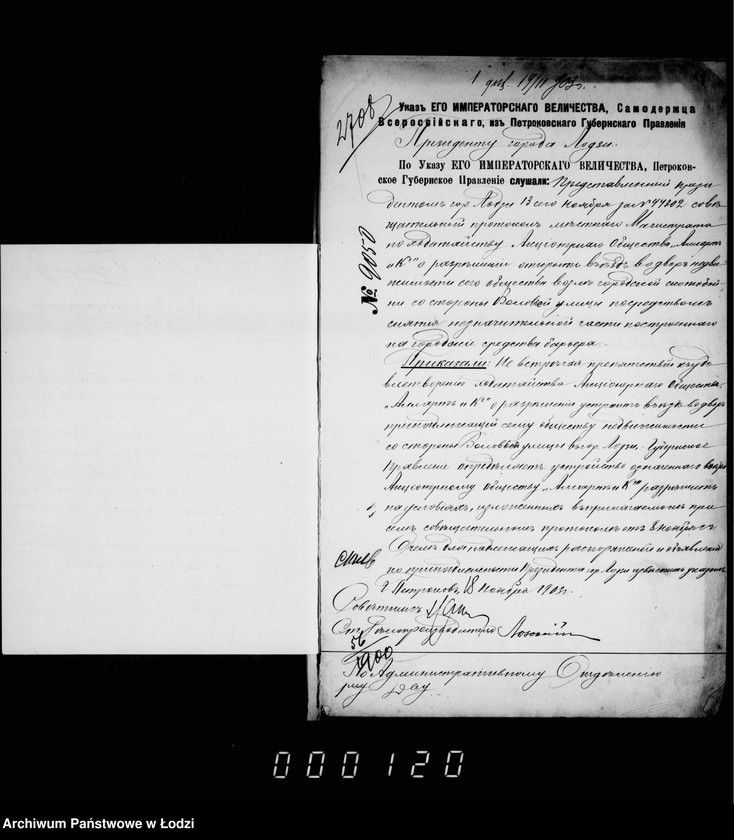 1 дѣл. 19/II 903 г.
2708
Указъ ЕГО ИМПЕРАТОРСКАГО ВЕЛИЧЕСТВА, Самодержца
Всероссійскаго, изъ Петроковскаго Губернскаго Правленія
Президенту города Лодзи.
По Указу ЕГО ИМПЕРАТОРСКАГО ВЕЛИЧЕСТВА, Петроков-
ское Губернское Правленіе слушали: Представленный прези
дентомъ гор. Лодзи 13 сего Ноября за № 44802 совѣ
щательный протоколъ мѣстнаго Магистрата
по ходатайству Акціонернаго Общества
и К° о разрѣшеніи открыть въѣздъ во дворъ недви
жимости сего общества возлѣ городской скотобой
ни со стороны Воловой улицы посредствомъ
снятія незначительной части построеннаго
на городскіе средства барьера.
Приказали: Не встрѣчая препятствій къ удо
влетворенію ходатайства Акціонернаго Общества
и К° о разрѣшеніи устроить въѣздъ во дворъ
принадлежащей сему обществу недвижимости
со стороны Воловой улицы въ гор. Лодзи, Губернское
Правленіе опредѣляетъ: устройство означеннаго въѣзда
Акціонерному Обществу и К° разрѣшить
на условіяхъ, изложенныхъ въ прилагаемомъ при
семъ совѣщательномъ протоколѣ отъ 8 Ноября с.г.
О чемъ для надлежащихъ распоряженій и объявленій
по принадлежности Президента гор. Лодзи извѣстить указомъ.
г. Петроковъ, 18 Ноября 1903 г.
Совѣтникъ
Ст. Дѣлопроизводитель
По Административному Отдѣленію
000120
Archiwum Państwowe w Łodzi